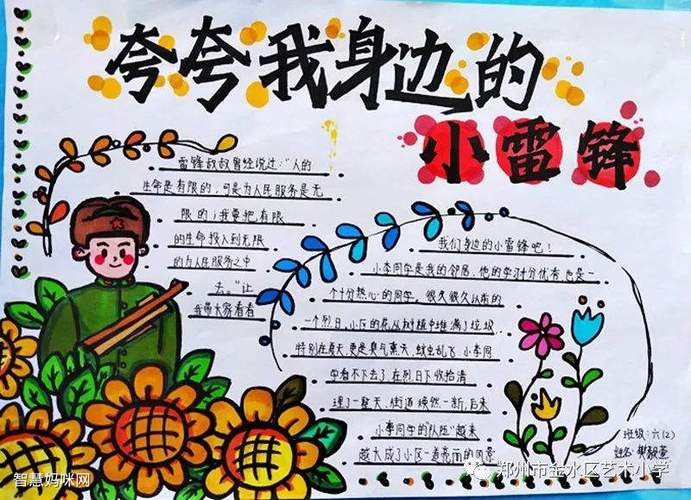 夸夸我身边的
小雷锋
雷锋叔叔曾经说过:“人的
生命是有限的,可是为人民服务是无
限的,我要把有限
的生命投入到无限
的为人民服务之中
去。”让
我带大家看看
我们身边的小雷锋吧!
小李同学是我的邻居,他的学习十分优秀,也是一
个十分热心的同学。很久很久以前的
一个烈日,小区的花丛树植中堆满了垃圾,
特别在夏天,更是臭气熏天,蚊虫乱飞,小李同
学看不下去了,在烈日下收拾清
理了一整天,街道焕然一新,后来
小李同学的“队伍”越来
越大成了小区一道亮丽的风景
班级:六(2)
姓名:
智慧妈咪网
郑州市金水区艺术小学